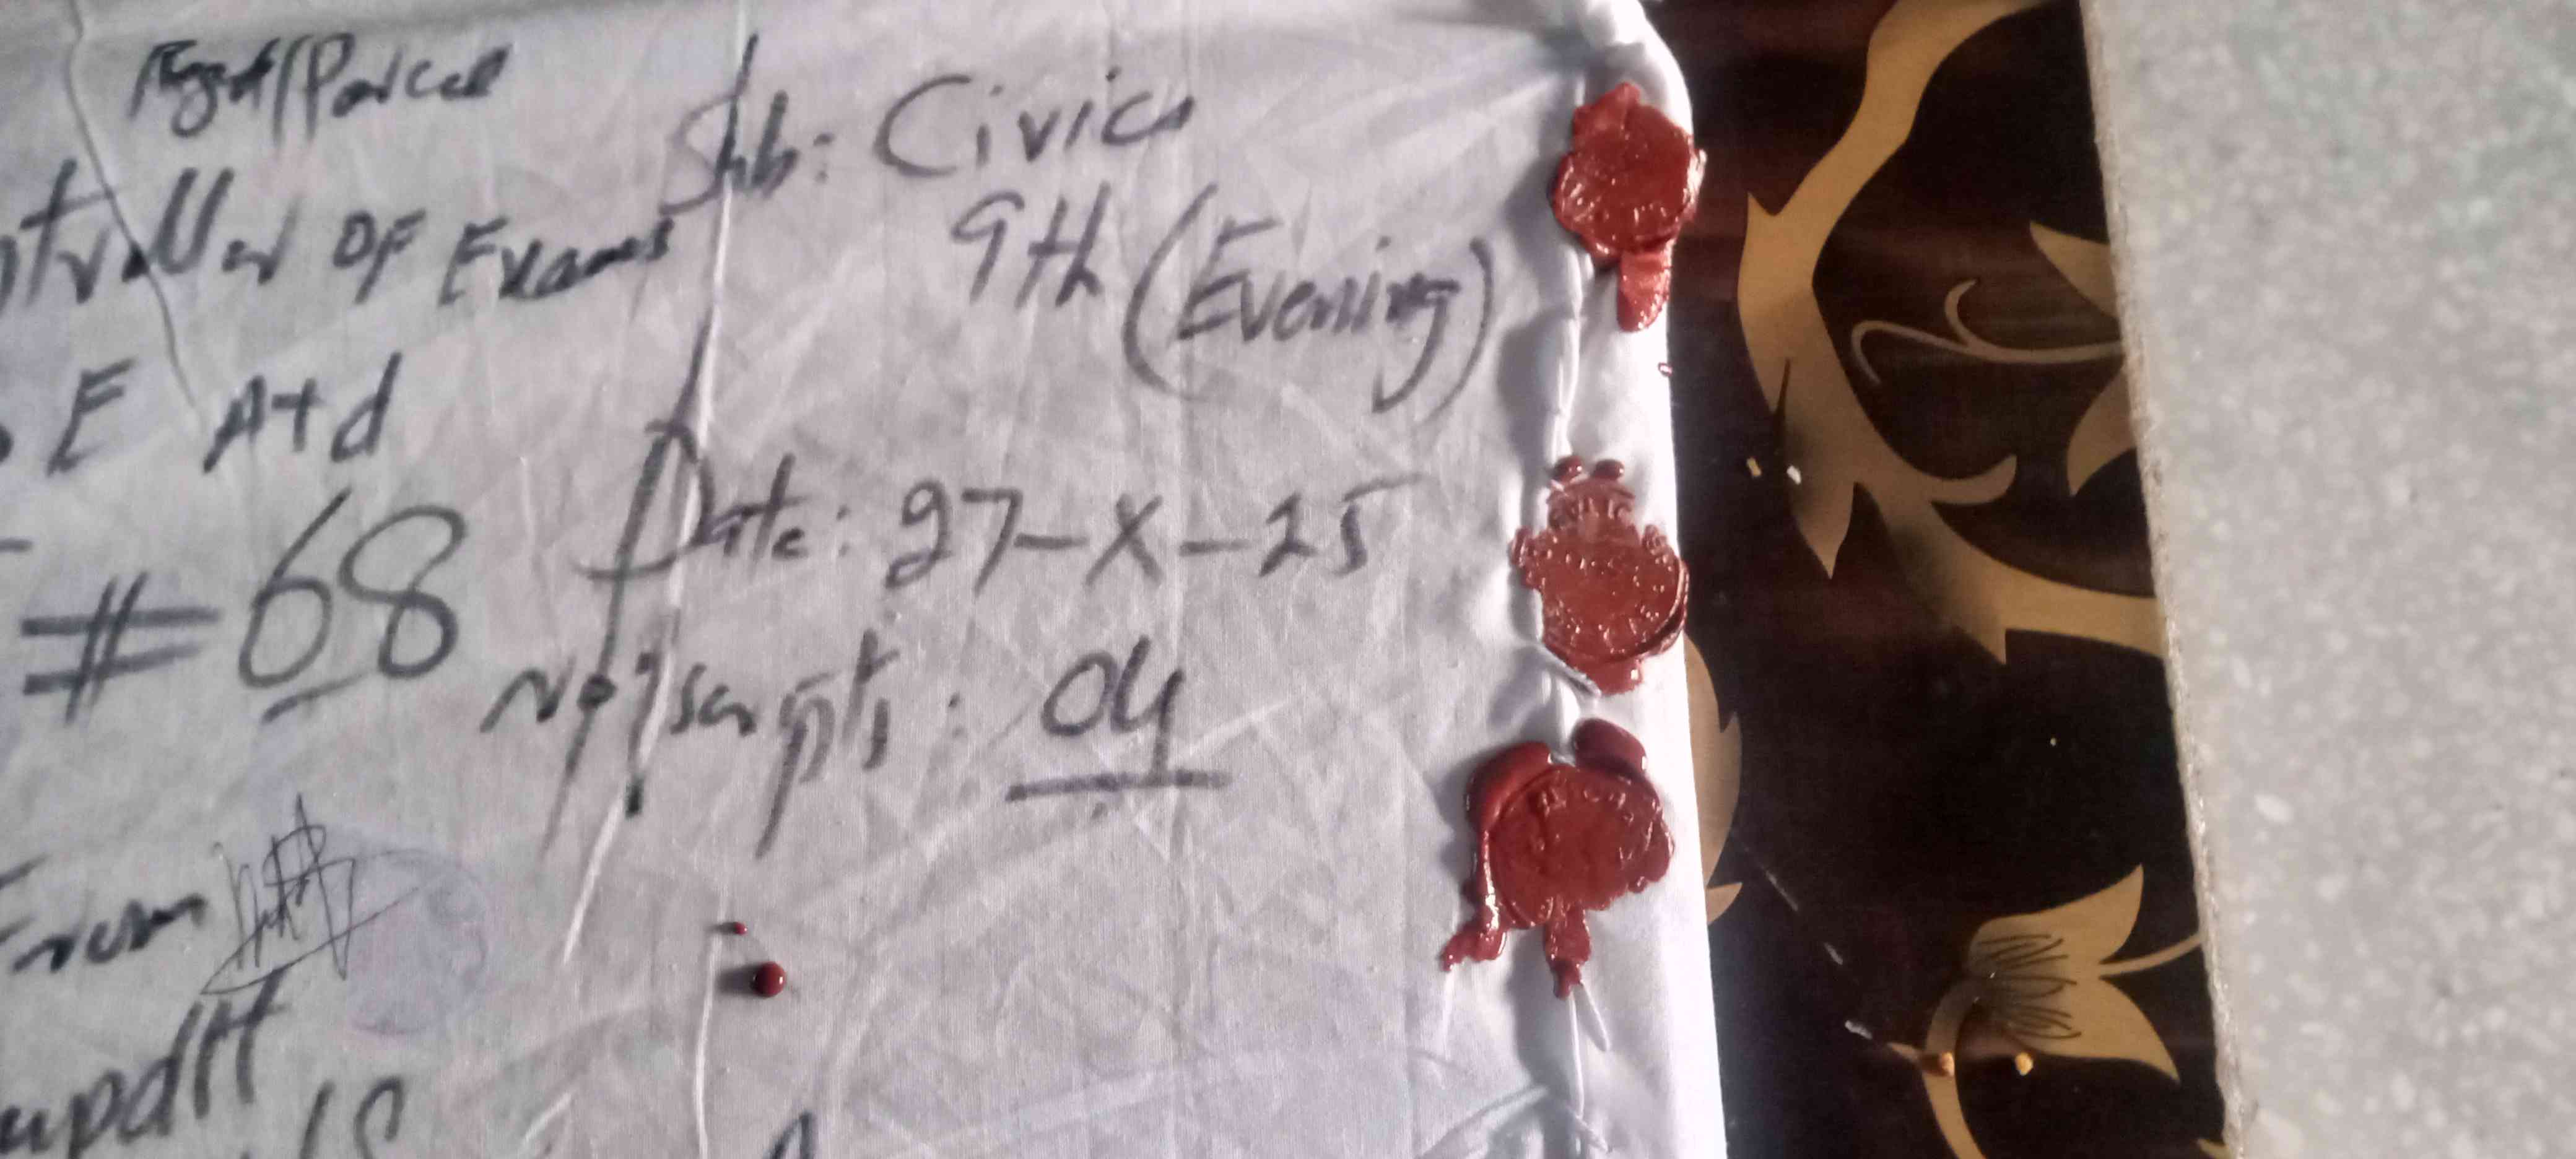 Regd/Parcel
ntroller OF Exams
E Atd
# 68
From
updtt
Sub: Civics
9th (Evening)
Date: 27-X-25
No of scripts: 04